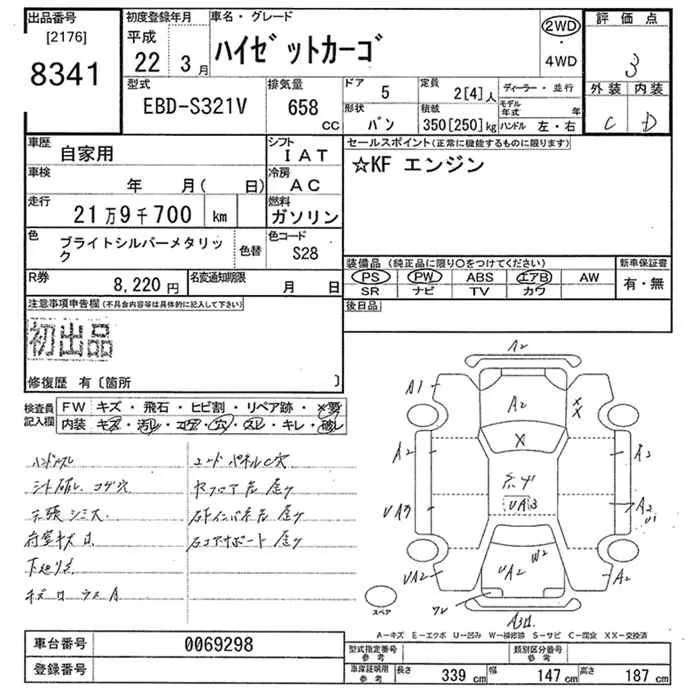 出品番号
[2176]
8341
初度登録年月
平成
22 3月
車名・グレード
ハイゼットカーゴ
2WD
・
4WD
評価点
3
外装 内装
C D
型式
EBD-S321V
排気量
658
CC
ドア 5
定員 2[4]人
ディーラー・並行
形状 バン
積載 350[250]kg
モデル年式 年
ハンドル 左・右
車歴
自家用
シフト
IAT
車検
年 月( 日)
冷房
AC
走行
21万9千700 km
燃料
ガソリン
色
ブライトシルバーメタリック
色替
色コード
S28
R券
8,220円
名変通知期限
月 日
セールスポイント(正常に機能するものに限ります)
☆KF エンジン
装備品 (純正品に限り○をつけてください)
新車保証書
PS PW ABS エアB AW
SR ナビ TV カワ
有・無
後日品
注意事項申告欄(不具合内容等は具体的に記入して下さい)
初出品
修復歴 有〔箇所 〕
検査員記入欄
FW キズ・飛石・ヒビ割・リペア跡・×要
内装 キズ・汚レ・コゲ・穴・スレ・キレ・破レ
ハンドルスレ
シート破レ コゲ穴
天張シミ大
荷室キズ凹
下廻り
コードパネルC穴
A2
A1
A2
X
A2
A2
UA3
UA2
W2
UA2
A2
A2
U1
スペア
A-キズ E-エクボ U-凹み W-補修跡 S-サビ C-腐食 XX-交換済
車台番号 0069298
登録番号
型式指定番号 参考
類別区分番号 参考
車庫証明用 参考
長さ 339 cm 幅 147 cm 高さ 187 cm